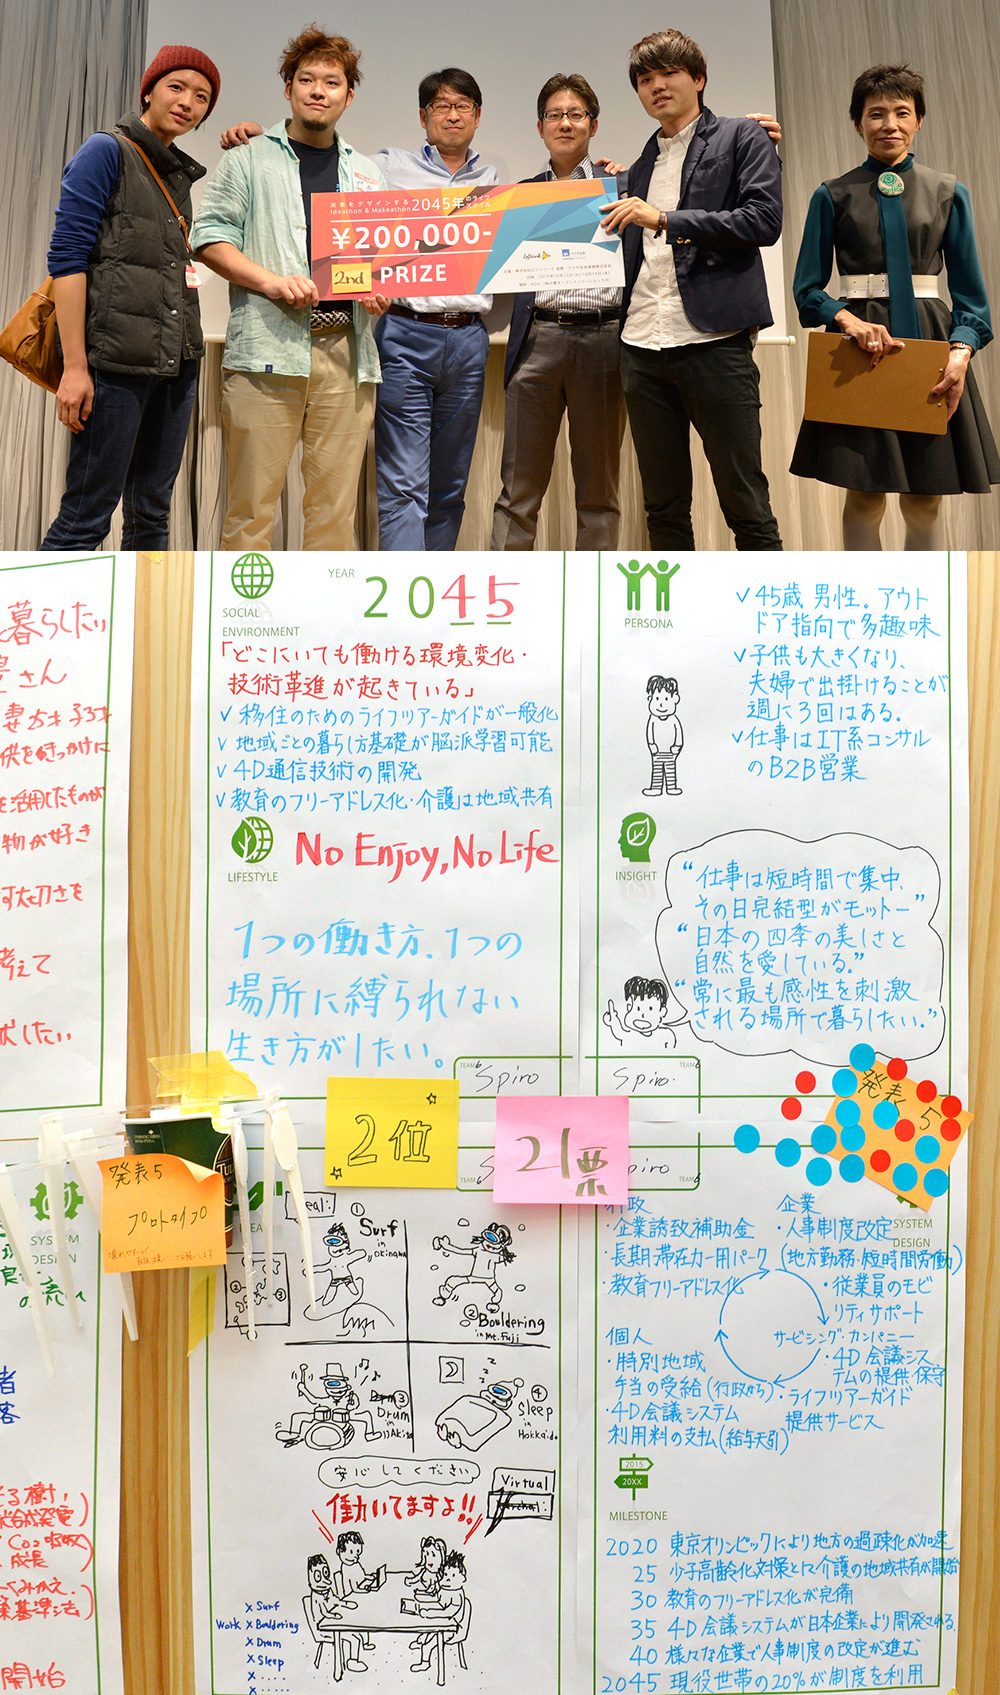 未来をデザインする
Ideathon & Makeathon
2045年のライフスタイル
¥200,000-
2nd
PRIZE
Loftwork
AXA
暮らしたい
さん
物が好き
大切さを
考えて
したい
SOCIAL
ENVIRONMENT
YEAR
2045
「どこにいても働ける環境変化・
技術革進が起きている」
✓ 移住のためのライフツアーガイドが一般化
✓ 地域ごとの暮らし方基礎が脳派学習可能
✓ 4D通信技術の開発
✓ 教育のフリーアドレス化・介護は地域共有
LIFESTYLE
No Enjoy, No Life
1つの働き方、1つの
場所に縛られない
生き方がしたい。
TEAM 6
Spiro
PERSONA
✓ 45歳 男性。アウト
ドア指向で多趣味
✓ 子供も大きくなり、
夫婦で出掛けることが
週に3回はある。
✓ 仕事はIT系コンサル
のB2B営業
INSIGHT
“仕事は短時間で集中、
その日完結型がモットー”
“日本の四季の美しさと
自然を愛している。”
“常に最も感性を刺激
される場所で暮らしたい。”
TEAM 6
Spiro.
発表5
2位
21票
発表5
プロトタイプ
SYSTEM
DESIGN
の流れ
TEAM 6
piro
TEAM 6
eal:
①
Surf
in
Okinawa
②
Bouldering
in Mt. Fuji
3
Drum
in
Akiba
④
Sleep
in
Hokkaido
安心してください
働いてますよ!!
Virtual
Work
x Surf
x Bouldering
x Drum
x Sleep
x .....
x .....
SYSTEM
DESIGN
行政
・企業誘致補助金
・長期滞在カー用パーク
・教育フリーアドレス化
企業
・人事制度改定
(地方勤務・短時間労働)
・従業員のモビ
リティサポート
個人
・特別地域
手当の受給(行政から)
・4D会議システム
利用料の支払(給与天引)
サービシング・カンパニー
・4D会議シス
テムの提供・保守
・ライフツアーガイド
提供サービス
2015
20XX
MILESTONE
2020 東京オリンピックにより地方の過疎化が加速
25 少子高齢化対策として介護の地域共有が開始
30 教育のフリーアドレス化が完備
35 4D会議システムが日本企業により開発される
40 様々な企業で人事制度の改定が進む
2045 現役世帯の20%が制度を利用
者
客
成長
開始